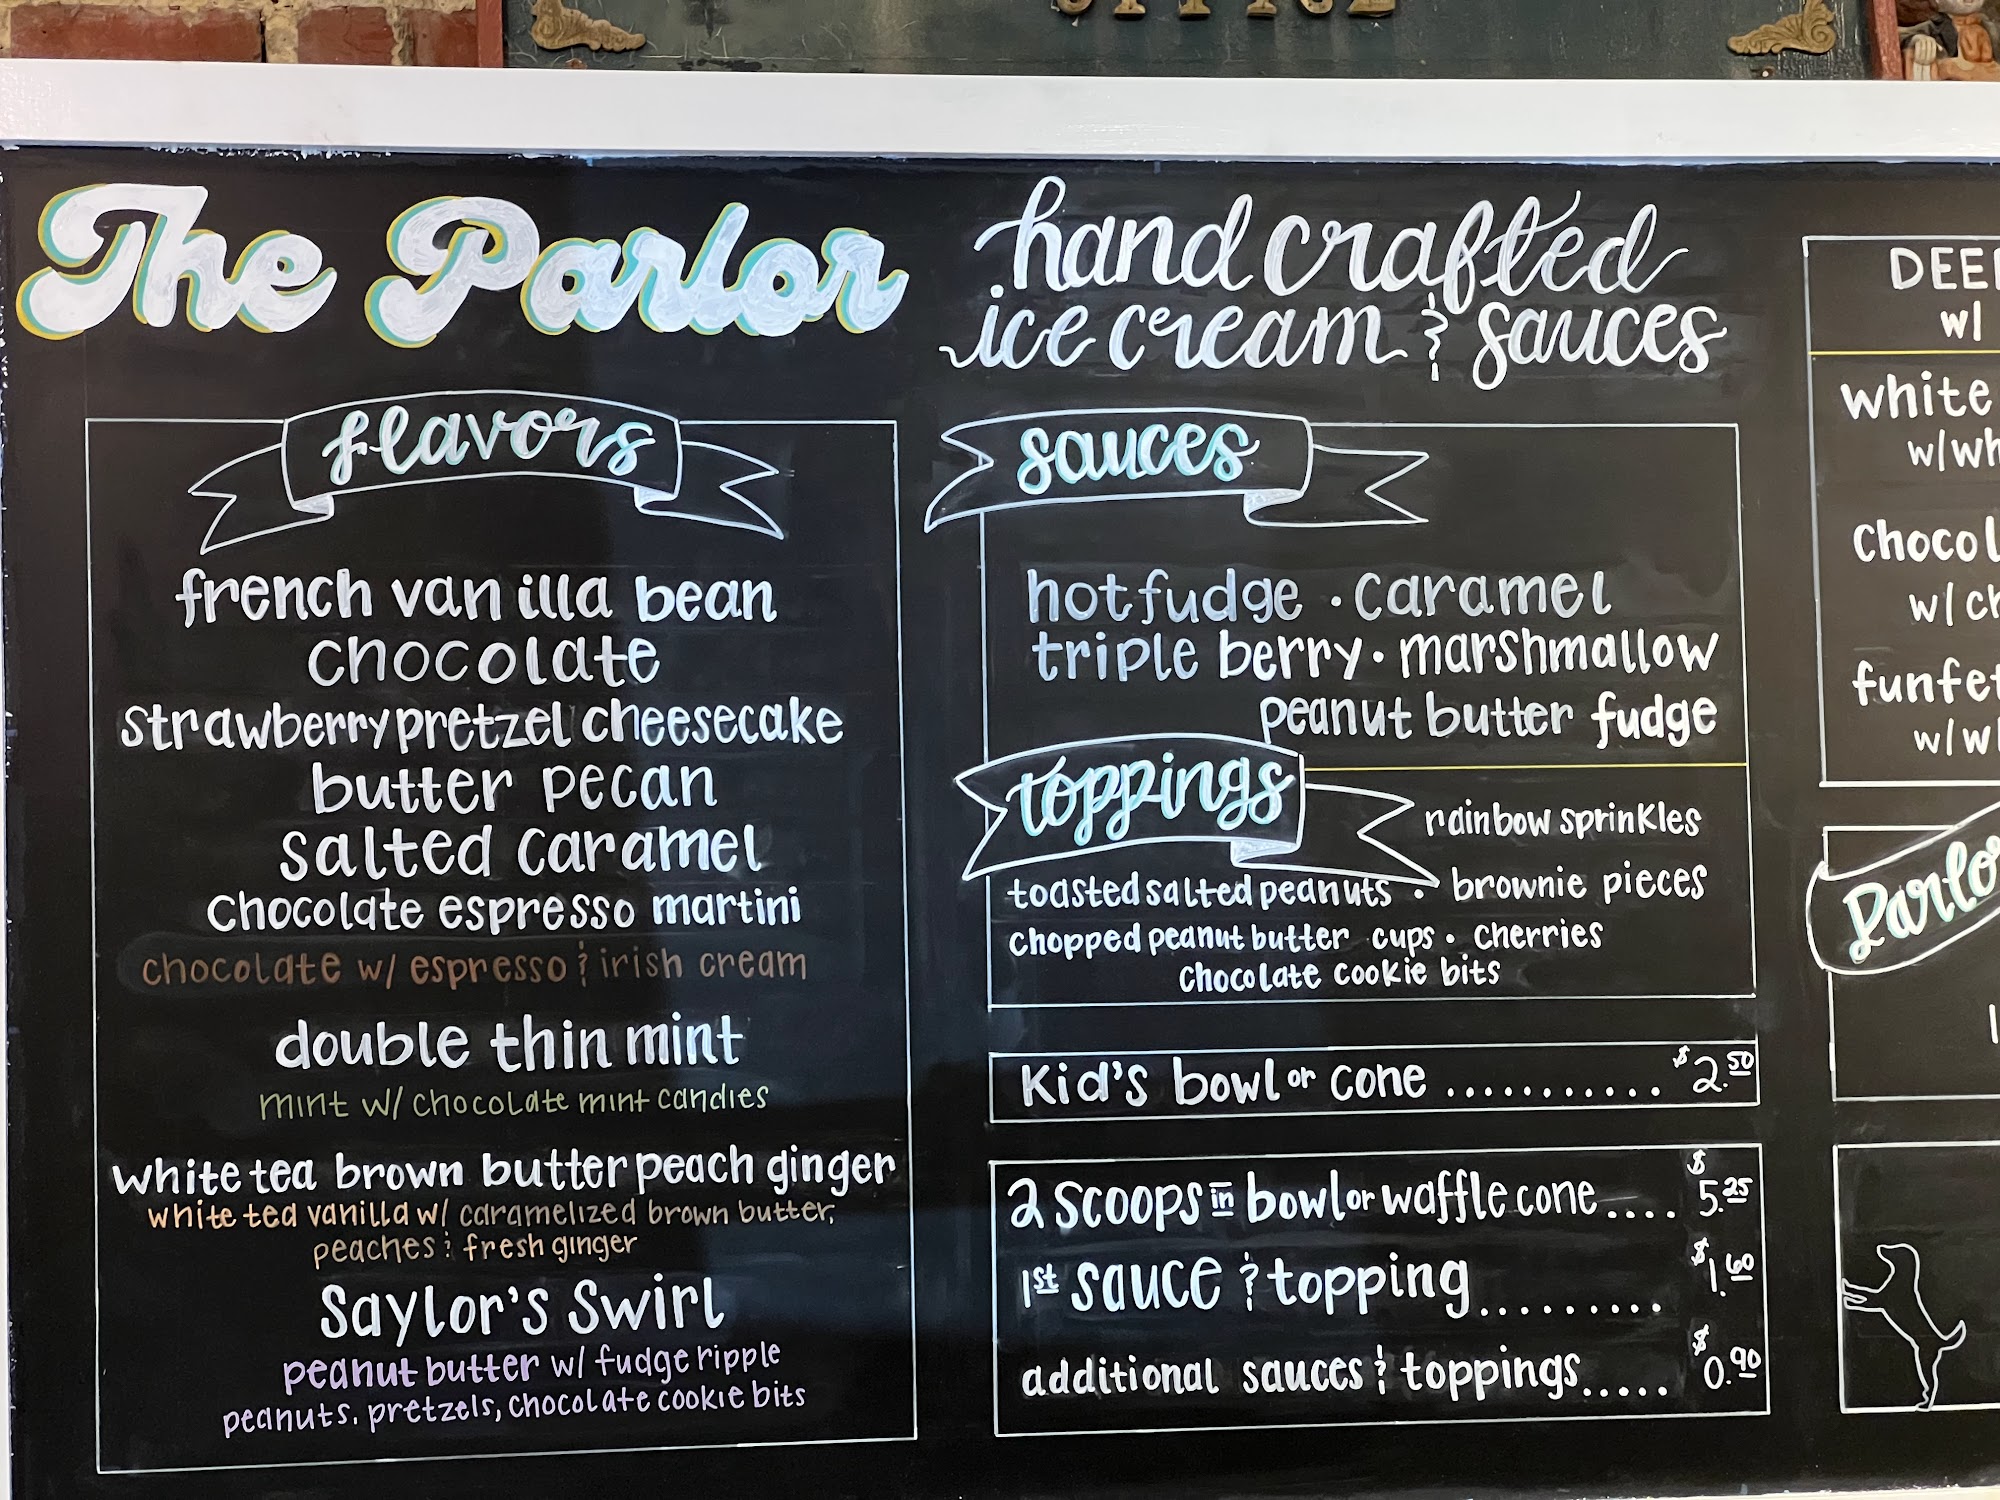 The Parlor
handcrafted
ice cream & sauces
flavors
french vanilla bean
chocolate
strawberry pretzel cheesecake
butter pecan
salted caramel
chocolate espresso martini
chocolate w/ espresso & irish cream
double thin mint
mint w/ chocolate mint candies
white tea brown butter peach ginger
white tea vanilla w/ caramelized brown butter,
peaches & fresh ginger
Saylor's Swirl
peanut butter w/ fudge ripple
peanuts, pretzels, chocolate cookie bits
sauces
hot fudge · caramel
triple berry · marshmallow
peanut butter fudge
toppings
rainbow sprinkles
toasted salted peanuts · brownie pieces
chopped peanut butter cups · cherries
chocolate cookie bits
Kid's bowl or cone ........... $2.50
2 scoops in bowl or waffle cone .... $5.25
1st sauce & topping ......... $1.60
additional sauces & toppings ..... $0.90
w/
white
funfet
Parlo